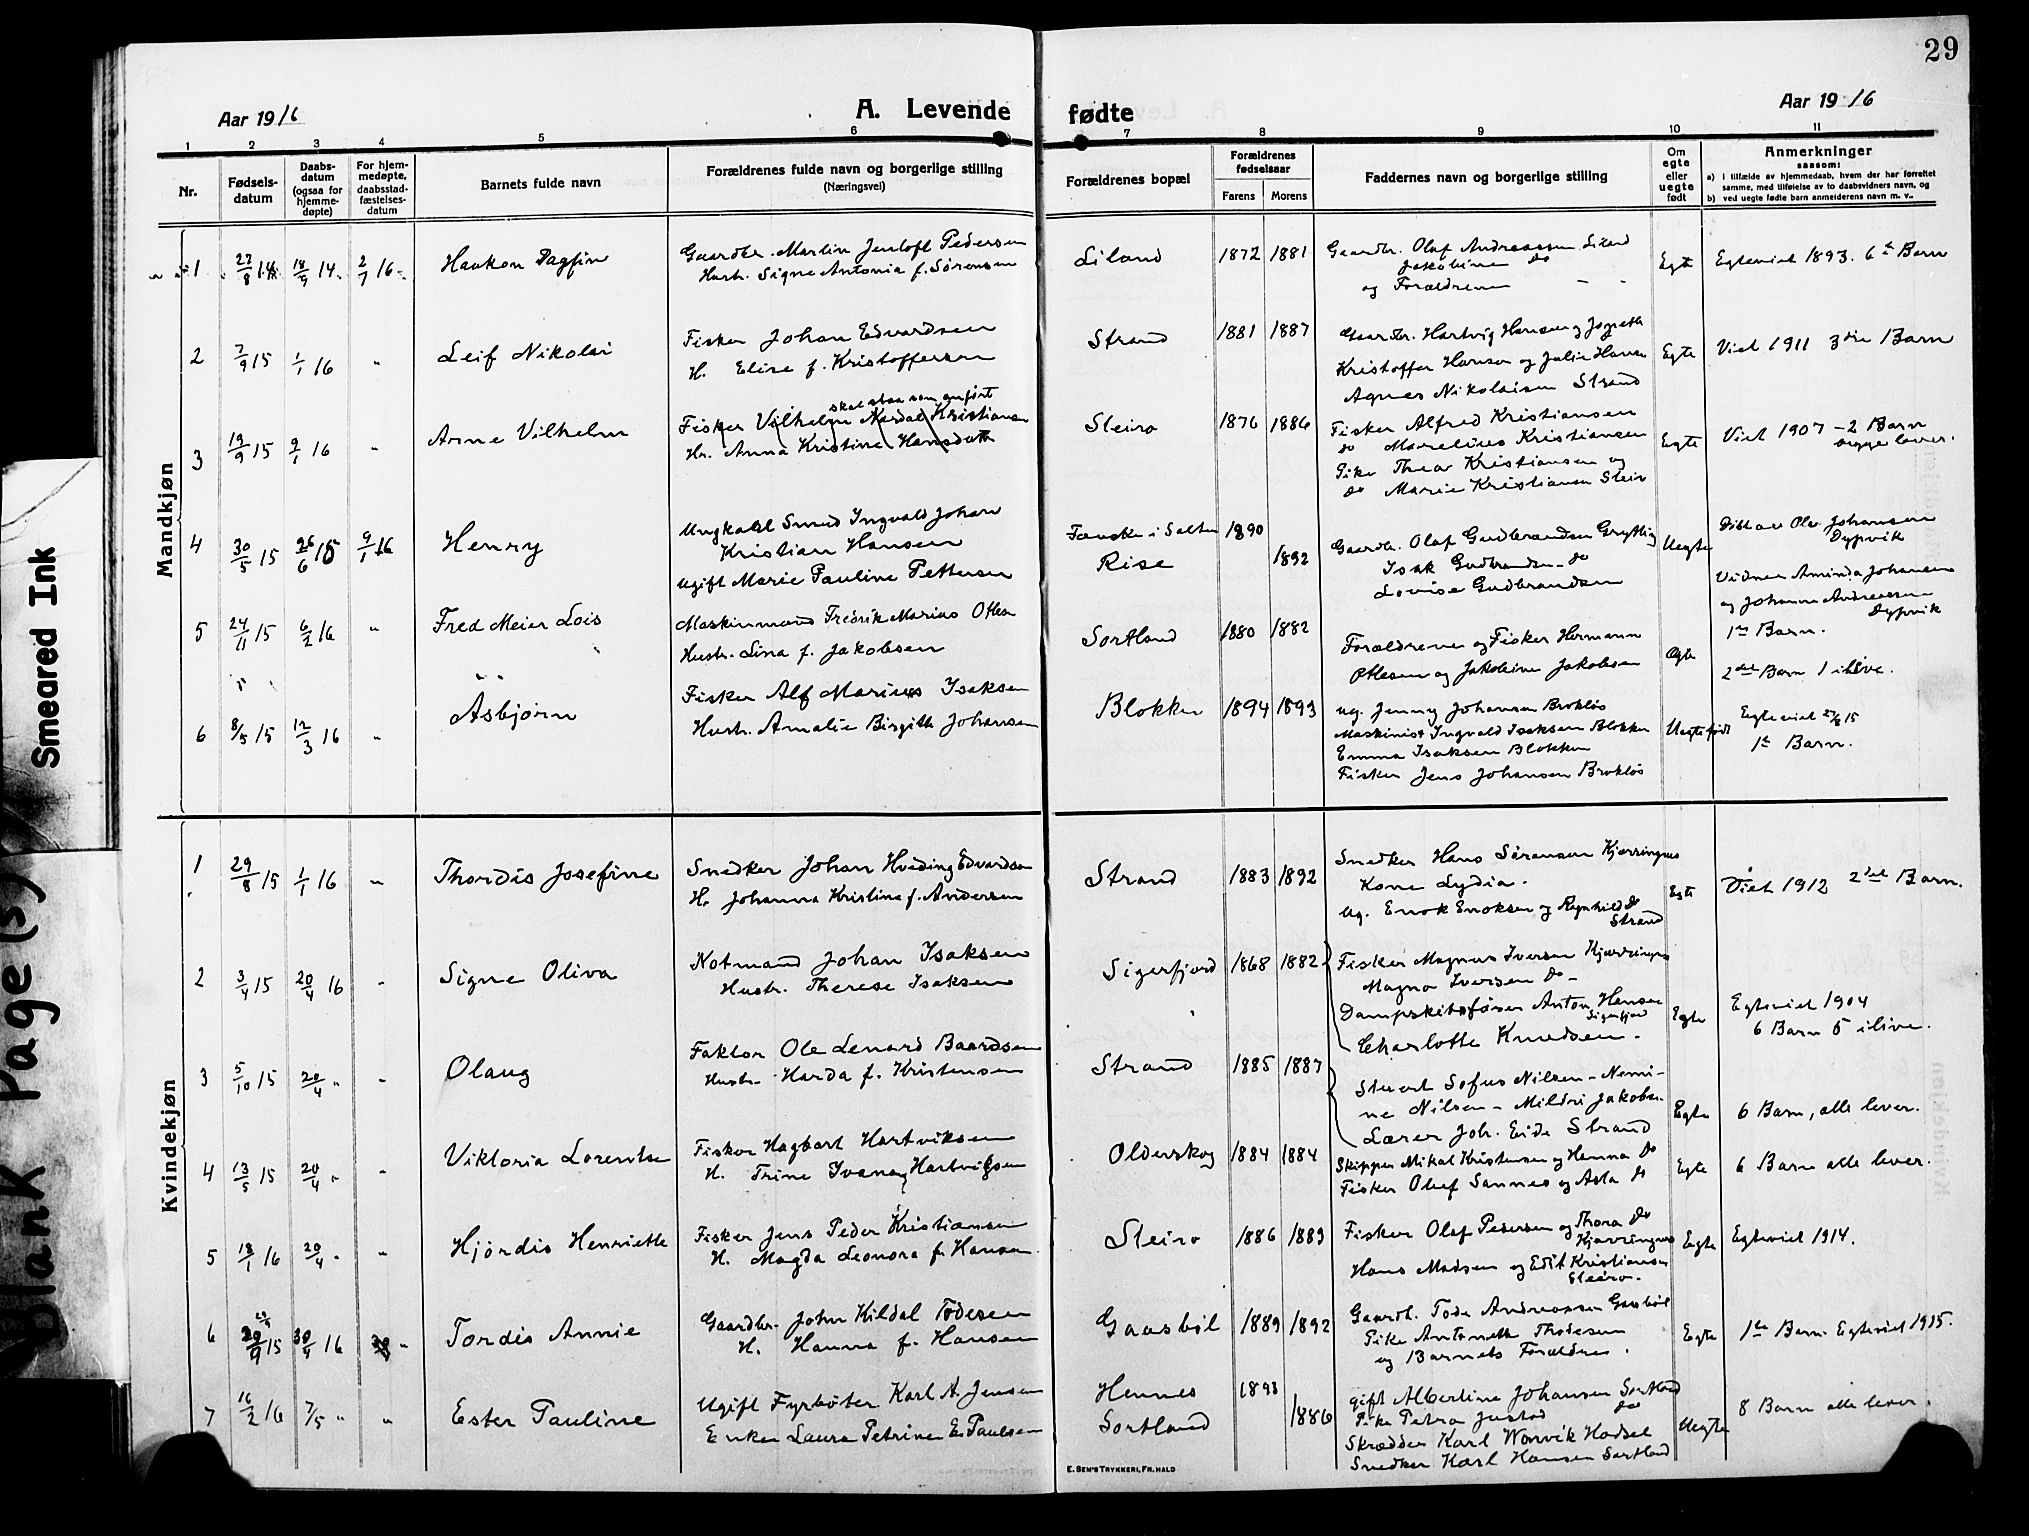 29
Aar 1916
A. Levende fødte
Aar 1916
1 2 3 4 5 6 7 8 9 10 11
Nr.
Fødsels-
datum
Daabs-
datum
(ogsaa for
hjemme-
døpte)
For hjem-
medøpte,
daabsstad-
fæstelses-
datum
Barnets fulde navn
Forældrenes fulde navn og borgerlige stilling
(Næringsvei)
Forældrenes bopæl
Forældrenes
fødselsaar
Farens Morens
Faddernes navn og borgerlige stilling
Om
egte
eller
uegte
født
Anmerkninger
saasom:
a) i tilfælde av hjemmedaab, hvem der har forrettet
samme, med tilføielse av to daabsvidners navn, og
b) ved uegte fødte barn anmelderens navn m. v.
Mandkjøn
1 27/8 14 18/9 14 2/7 16
Haakon Dagfin
Gaardbr. Martin Jentoft Pedersen
Hustr. Signe Antonia f. Sørensen
Liland 1872 1881
Gaardbr. Olaf Andreassen Liland
Jakobine do
og Forældrene
Egte
Egteviet 1893. 6te Barn
2 7/9 15 1/1 16 "
Leif Nikolai
Fisker Johan Edvardsen
H. Elise f. Kristoffersen
Strand 1881 1887
Gaardbr. Hartvig Hansen og
Kristoffer Hansen og Julie Hansen
Agnes Nikolaisen Strand
Egte
Viet 1911 3die Barn
3 19/9 15 9/1 16 "
Arne Vilhelm
skal staa som anført
Fisker Vilhelm Nordal Kristiansen
Hu. Anna Kristine Hansdatt
Sleiro 1876 1886
Fisker Alfred Kristiansen
do Marelius Kristiansen
Pike Thea Kristiansen og
do Marie Kristiansen Sleiro
Egte
Viet 1907 - 2 Barn
begge lever.
4 30/5 15 26/6 15 9/1 16
Henry
Ungkarl Smed Ingvald Johan
Kristian Hansen
Ugift Marie Pauline Pettersen
Fauske i Salten 1890
Rise 1892
Gaardbr. Olaf Gudbrandsen Grytting
Isak Gudbrandsen do
Lovise Gudbrandsen
Uegte
Ole Johansen
Dypvik
Vidner Aminda Johansen
og Johanna Andreassen
Dypvik
1te Barn.
5 24/11 15 6/2 16 "
Fred Meier Lois
Maskinmand Fredrik Marius Olsen
Hustr. Lina f. Jakobsen
Sortland 1880 1882
Forældrene og Fisker Hermann
Ottesen og Jakobine Jakobsen
Egte
2det Barn 1 ilive.
6 8/5 15 12/3 16 "
Asbjørn
Fisker Alf Marius Isaksen
Hustr. Amalie Birgith Johansen
Blokken 1894 1893
ug. Jenny Johansen Brokløs
Maskinist Ingvald Isaksen Blokken
Emma Isaksen Blokken
Fisker Jens Johansen Brokløs
Uegte født
Egteviet 27/8 15
1te Barn.
Kvindekjøn
1 29/8 15 1/1 16 "
Thordis Josefine
Snedker Johan Hveding Edvardsen
H. Johanna Kristine f. Andersen
Strand 1883 1892
Snedker Hans Sørensen Kjerringnes
Kone Lydia.
Ug. Enok Enoksen og Ragnhild do
Strand
Egte
Viet 1912 2det Barn.
2 3/4 15 20/4 16 "
Signe Oliva
Notmand Johan Isaksen
Hustr. Therese Isaksen
Sigerfjord 1868 1882
Fisker Magnus Iversen Kjerringnes
Magna Iversen do
Dampskibsfører Anton Hansen
Sigerfjord
Charlotte Knudsen.
Egte
Egteviet 1904
6 Barn 5 ilive.
3 5/10 15 20/4 " "
Olaug
Faktor Ole Lenard Baardsen
Hustr. Harda f. Kristensen
Strand 1885 1887
Stuert Sofus Nilsen - Nemi-
ne Nilsen - Mildri Jakobsen
Lærer Joh. Eide Strand
Egte
6 Barn, alle lever.
4 13/5 15 20/4 " "
Viktoria Lorentse
Fisker Hagbart Hartviksen
H. Trine Ivana Hartvigsen
Olderskog 1884 1884
Skipper Mikal Kristensen og Hanna do
Fisker Oluf Sannes og Asta do
Egte
6 Barn alle lever.
5 18/1 16 20/4 " "
Hjørdis Henriette
Fisker Jens Peder Kristiansen
H. Magda Leonora f. Hansen
Sleiro 1886 1889
Fisker Olaf Pedersen og Thora do
Kjerringnes
Hans Madsen og Edit Kristiansen
Sleiro.
Egte
Egteviet 1914.
6 29/9 15 30/4 16 "
Tordis Annie
Gaardbr. John Kildal Todesen
H. Hanna f. Hansen
Gaasbøl 1889 1892
Gaardb. Tode Andreassen Gaasbøl
Pike Antonette Thodesen
og Barnets Forældre.
Egte
1te Barn. Egteviet 1915.
7 16/2 16 7/5 " "
Ester Pauline
Ugift Fyrbøter Karl A. Jensen
Enken Laura Petrine E. Paulsen
Hennes 1893
Sortland 1886
Gift Albertine Johansen Sortland
Pike Petra Justad do
Skrædder Karl Worvik Hadsel
Snedker Karl Hansen Sortland
Uegte
8 Barn alle lever.
E. SEM'S TRYKKERI, FR. HALD
Smeared Ink
Blank Page(s)